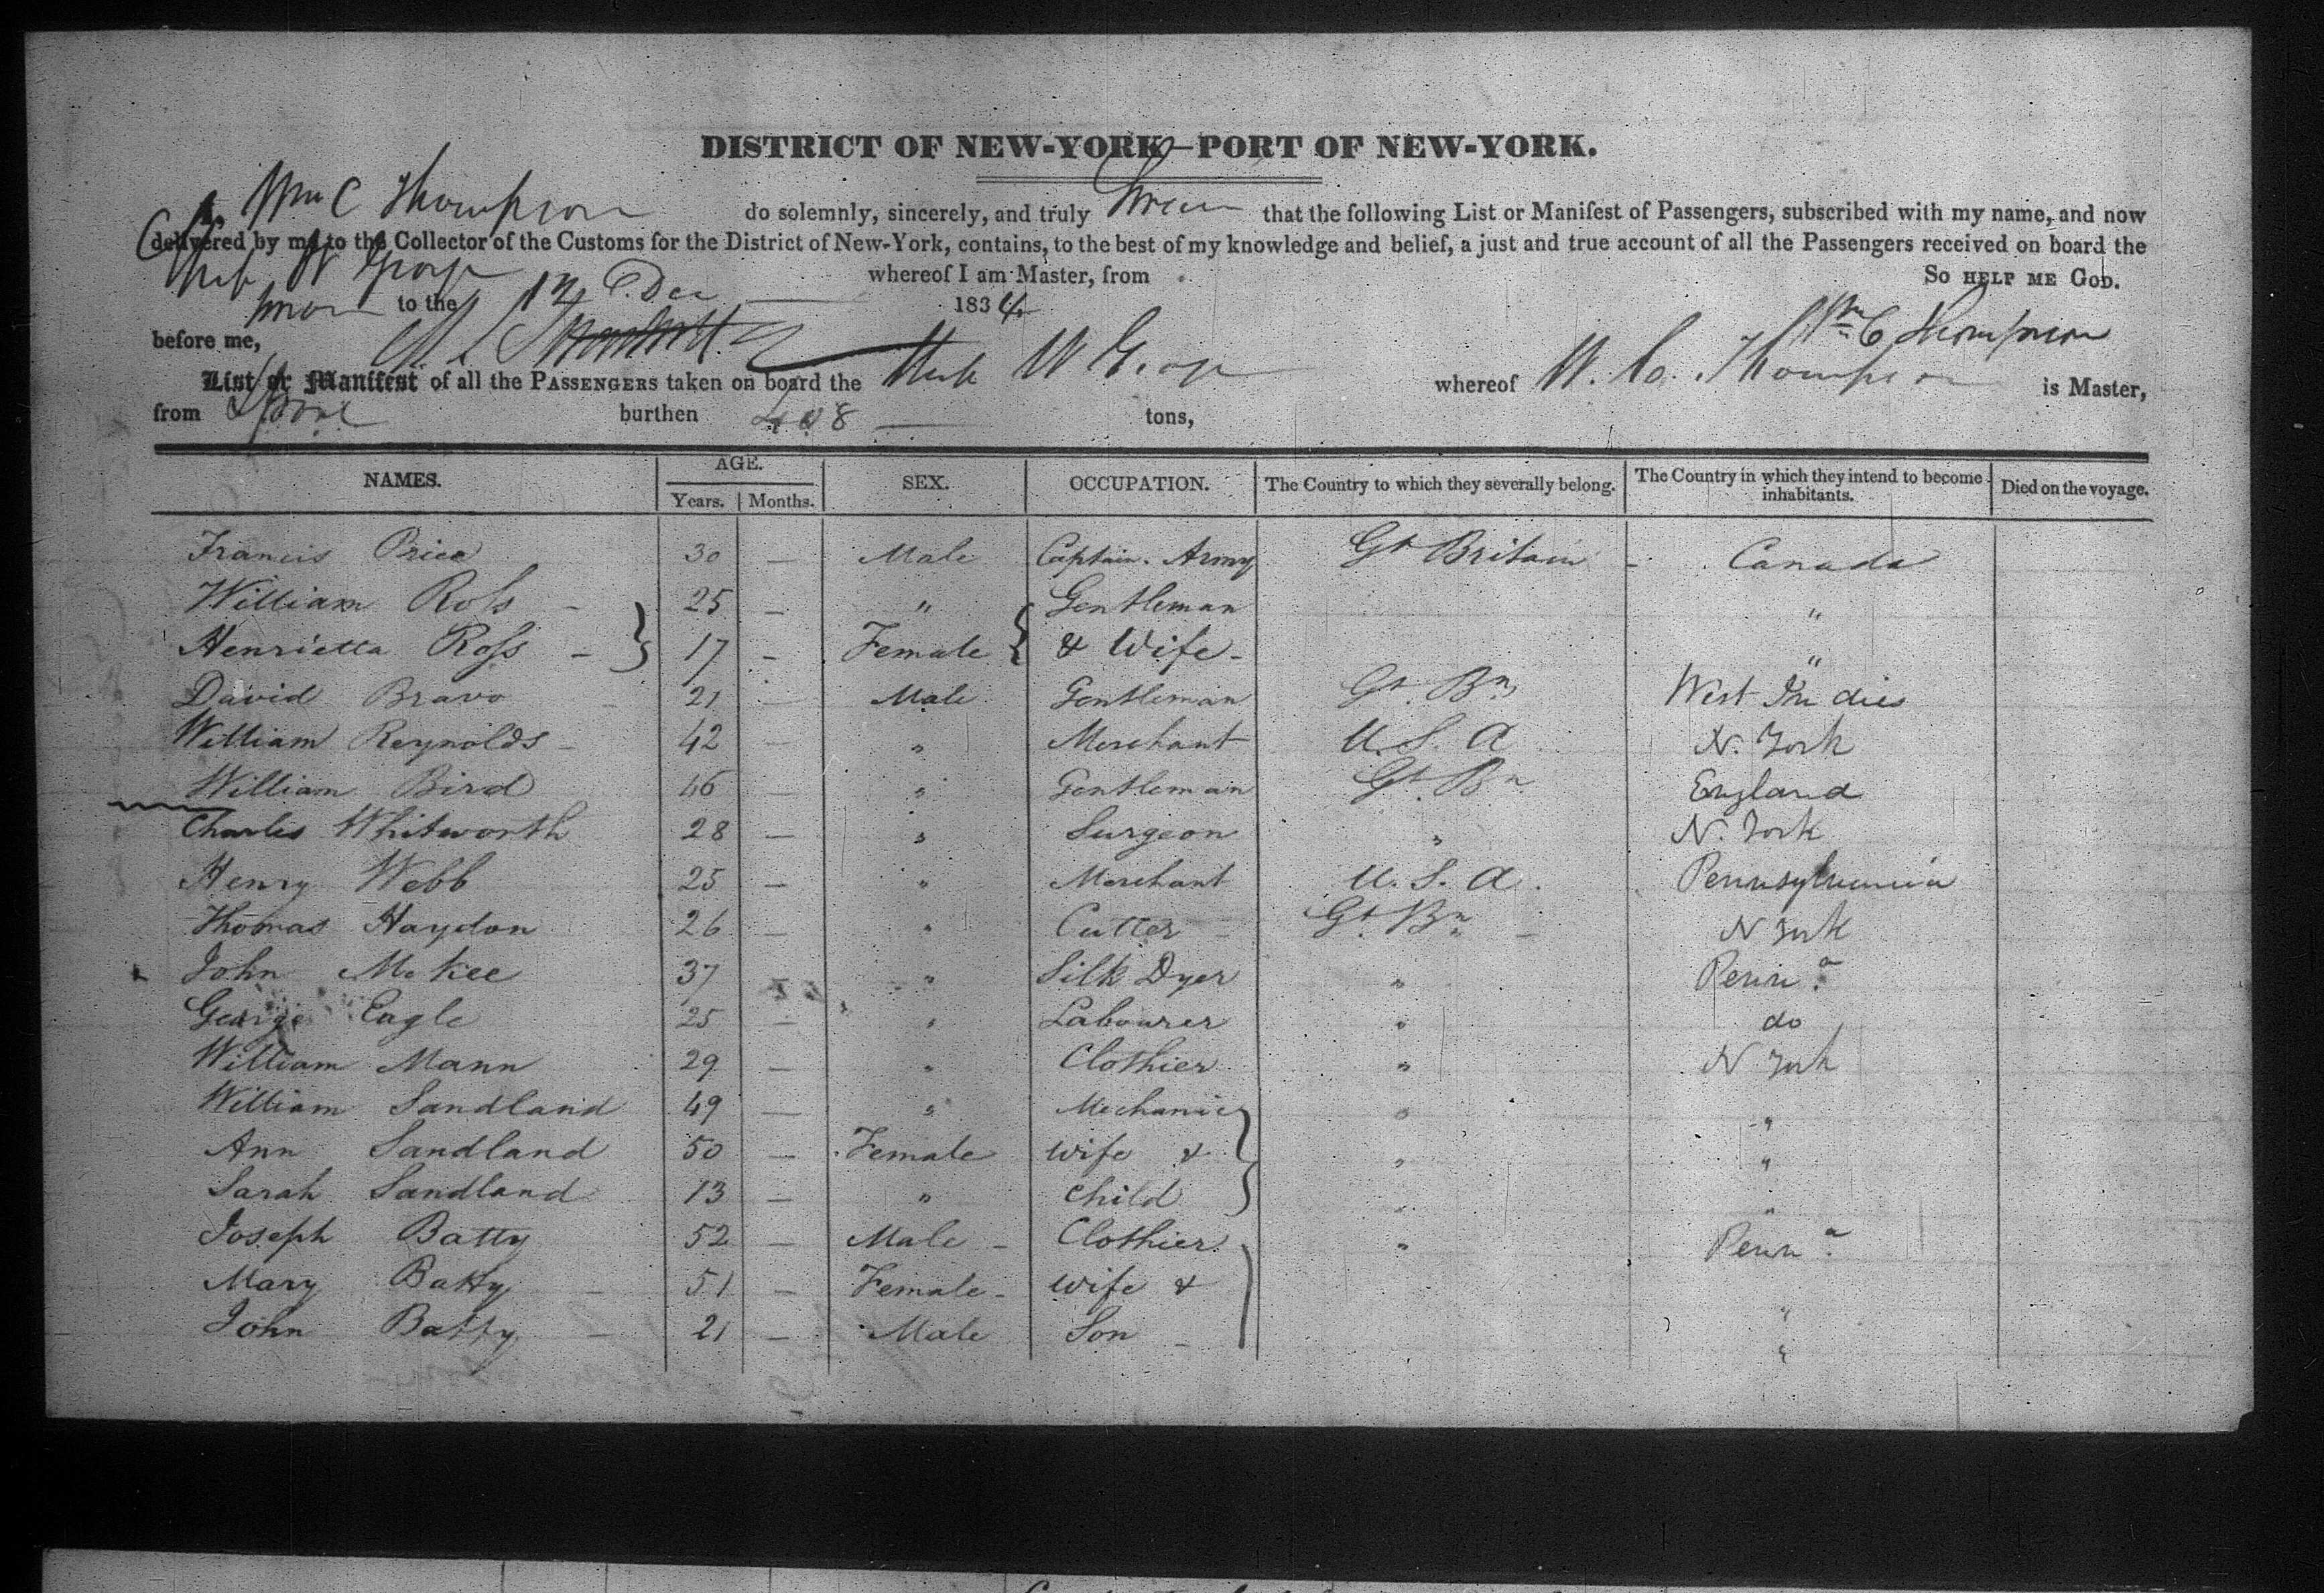 DISTRICT OF NEW-YORK—PORT OF NEW-YORK.
I, Wm C Thompson do solemnly, sincerely, and truly swear that the following List or Manifest of Passengers, subscribed with my name, and now
delivered by me to the Collector of the Customs for the District of New-York, contains, to the best of my knowledge and belief, a just and true account of all the Passengers received on board the
Ship whereof I am Master, from So HELP ME GOD.
to the Dec 1834
before me, Wm C Thompson
List or Manifest of all the PASSENGERS taken on board the Ship whereof W. C. Thompson is Master,
from burthen 408 tons,
NAMES. AGE. SEX. OCCUPATION. The Country to which they severally belong. The Country in which they intend to become inhabitants. Died on the voyage.
Years. Months.
Francis Price 30 — Male Captain. Army Gt Britain - Canada
William Ross - 25 — " Gentleman "
Henrietta Ross - 17 - Female & Wife - "
David Bravo 21 — Male Gentleman Gt. Bn West Indies
William Reynolds - 42 — " Merchant U. S. A N. York
William Bird 46 — " Gentleman Gt Bn England
Charles Whitworth 28 — " Surgeon " N. York
Henry Webb 25 — " Merchant U. S. A. Pennsylvania
Thomas Haydon 26 — " Cutter - Gt. Bn - N York
John McKee 37 " Silk Dyer " Penna
George Eagle 25 — " Labourer " do
William Mann 29 — " Clothier " N York
William Sandland 49 — " Mechanic " "
Ann Sandland 50 — Female Wife & " "
Sarah Sandland 13 — " Child " "
Joseph Batty 52 — Male - Clothier " Penna
Mary Batty - 51 — Female - Wife & "
John Batty - 21 — Male Son - "